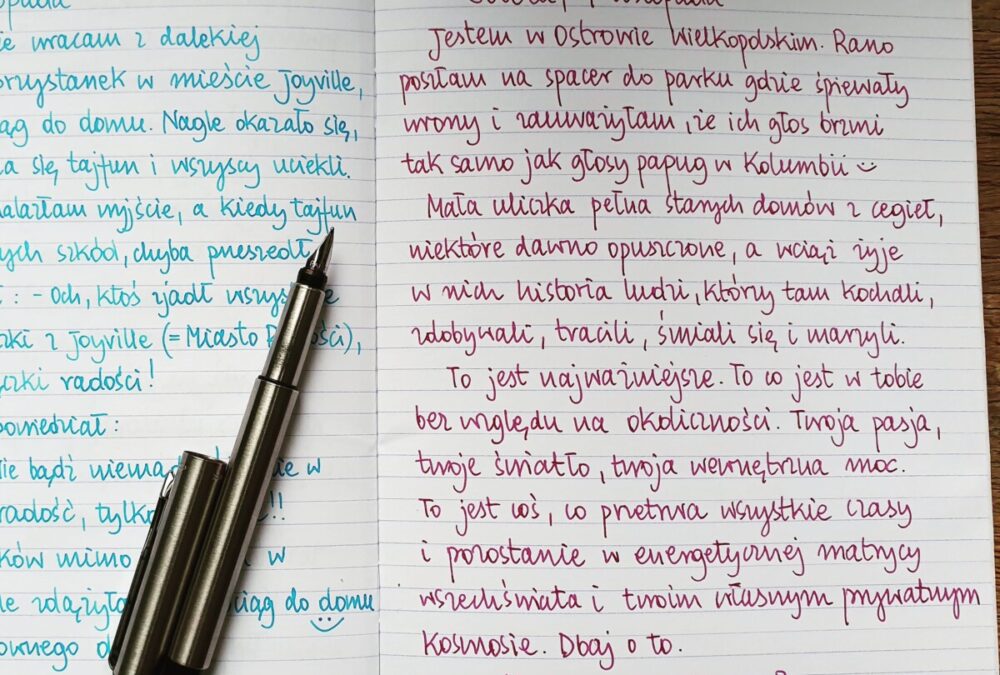 wracam z dalekiej
przystanek w mieście Joyville,
do domu. Nagle okazało się,
się tajfun i wszyscy uciekli.
wyjście, a kiedy tajfun
szkód, chyba przeszedł
: - Och, ktoś zjadł
z Joyville (= Miasto
radości!
:
bądź w
radość, !!
mimo w
do domu
Jestem w Ostrowie Wielkopolskim. Rano
poszłam na spacer do parku gdzie śpiewały
wrony i zauważyłam, że ich głos brzmi
tak samo jak głosy papug w Kolumbii
Mała uliczka pełna starych domów z cegieł,
niektóre dawno opuszczone, a wciąż żyje
w nich historia ludzi, którzy tam kochali,
zdobywali, tracili, śmiali się i marzyli.
To jest najważniejsze. To co jest w tobie
bez względu na okoliczności. Twoja pasja,
twoje światło, twoja wewnętrzna moc.
To jest coś, co przetrwa wszystkie czasy
i pozostanie w energetycznej matrycy
wszechświata i twoim własnym prywatnym
kosmosie. Dbaj o to.